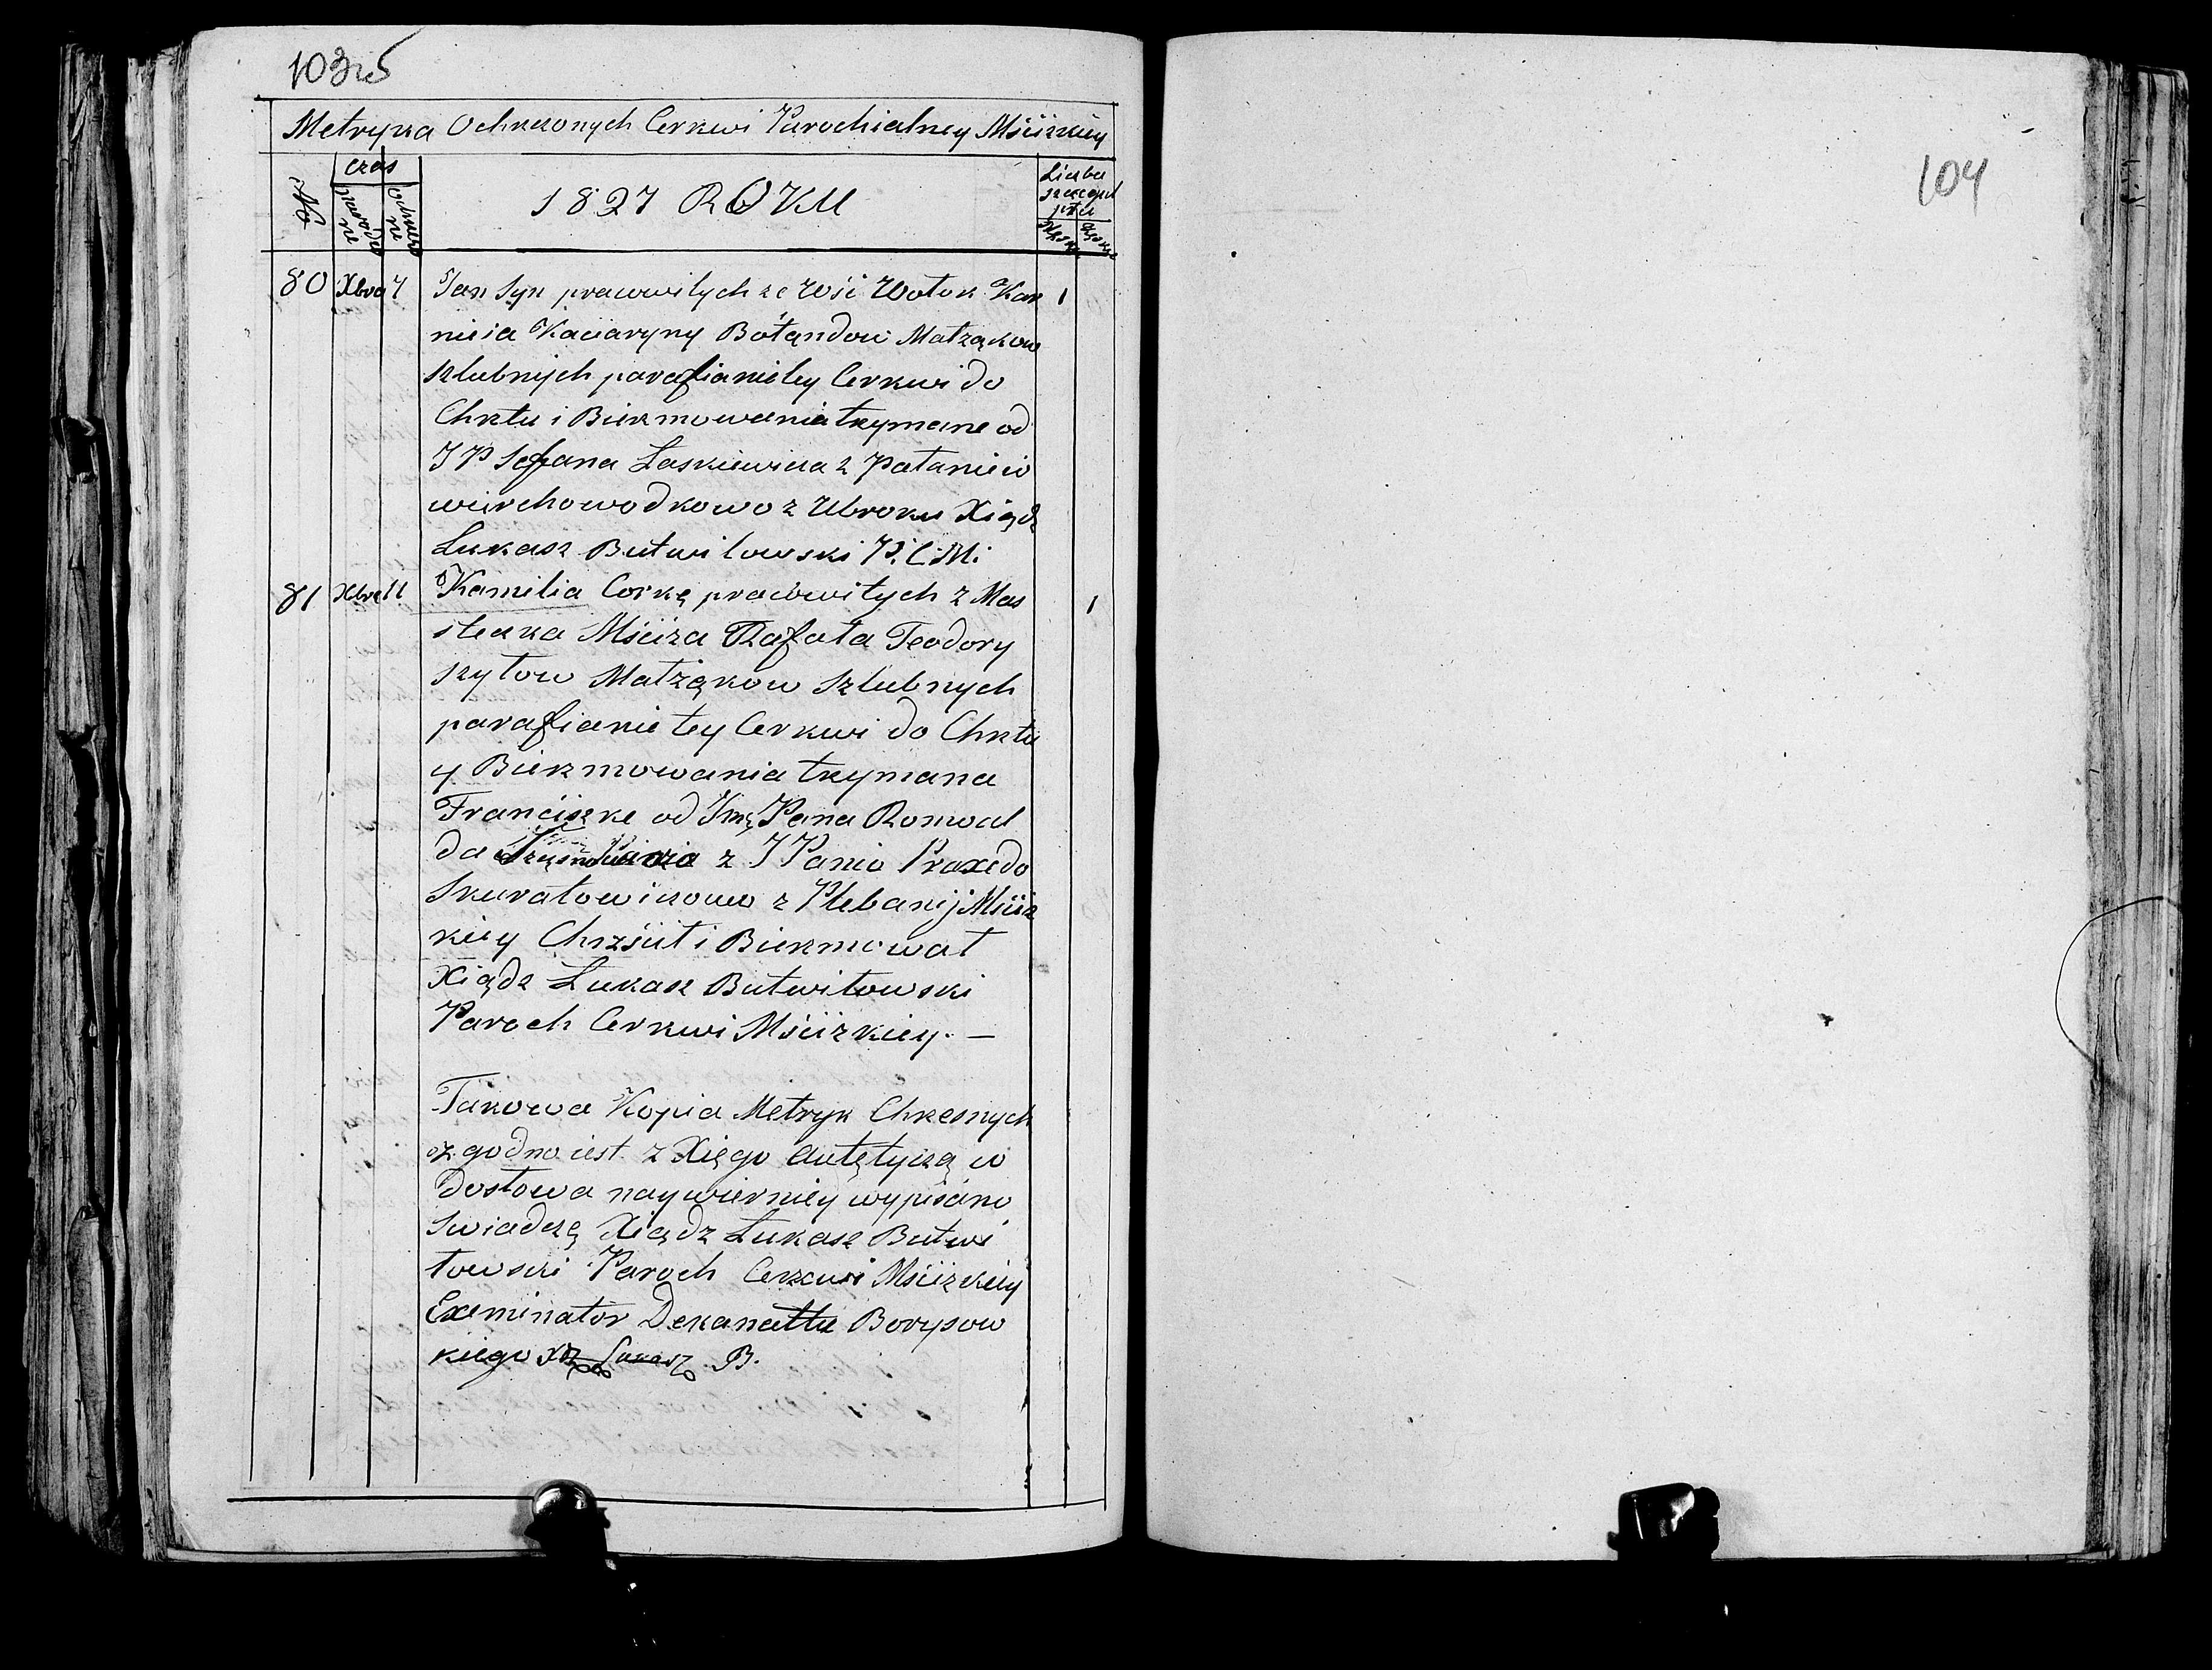 103
Metryka Ochrzonych Cerkwi Parochialney Mściżkiey
No
czas
Liczba
1827 ROKU
80 Xbra 4 Jan Syn prawowitych ze Wsi Wołok Kar 1
nieia Kaciaryny Bołandow Małżąkow
szlubnych parafianiley Cerkwi do
Chrztu i Bierzmowania trzymane od
J P Stefana Laskiewicza z Pataniecio
wierchowodkowo z Ubroku Xiądz
Lukasz Butwilowski P. C. M.
81 Xbra 11 Kamilia Corką prawowitych z Mas 1
steczka Mściża Rafała Teodory
szytow Małżąkow szlubnych
parafianie tey Cerkwi do Chrztu
y Bierzmowania trzymana
Franciszke od Jmę Pana Romual
da z J Panio Praxedo
Skuratowiczowo z Plebanij Mściż
kiey Chrzścił i Bierzmował
Xiądz Lukasz Butwiłowski
Paroch Cerkwi Mściżkiey. —
Takowa Kopia Metryk Chrzesnych
zgodno iest z Xięgo autętyczą w
dosłowa naywierniey wypisano
swiadczę Xiądz Łukasz Butwi
łowski Paroch Cerkwi Mściżkiey
Exeminator Dekanattu Borysow
kiego Xdz Łukasz B.
104